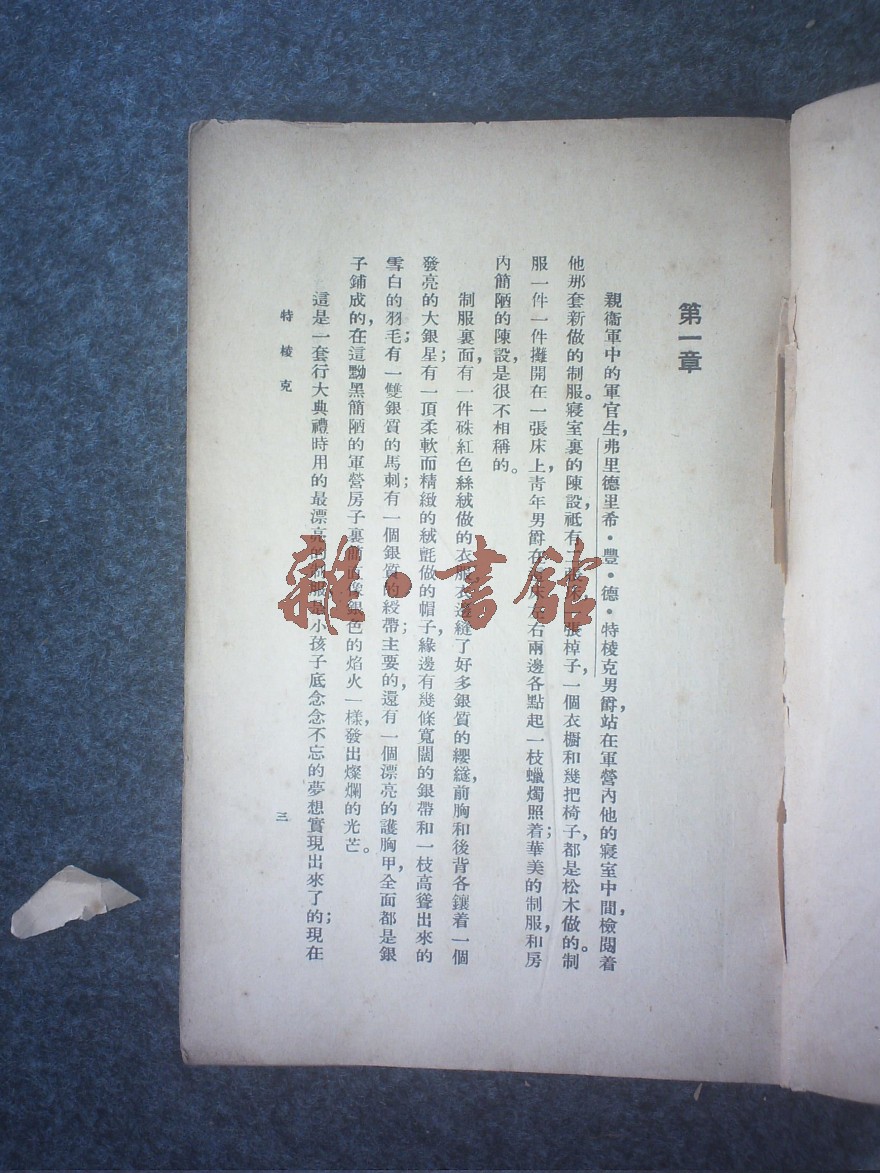 第一章
親衞軍中的軍官生，弗里德里希·豐·德·特棱克男爵，站在軍營內他的寢室中間，檢閱着
他那套新做的制服。寢室裏的陳設，祗有二張床，一張棹子，一個衣橱和幾把椅子，都是松木做的。制
服一件一件攤開在一張床上，青年男爵在床左右兩邊各點起一枝蠟燭；照着華美的制服，和房
內簡陋的陳設，是很不相稱的。
制服裏面，有一件硃紅色絲絨做的衣服，衣邊縫了好多銀質的纓縫，前胸和後背各鑲着一個
發亮的大銀星；有一頂柔軟而精緻的絨氈做的帽子，緣邊有幾條寬闊的銀帶和一枝高聳出來的
雪白的羽毛；有一雙銀質的馬刺；有一個銀質的綬帶；主要的，還有一個漂亮的護胸甲，全面都是銀
子鋪成的，在這黝黑簡陋的軍營房子裏銀色的焰火一樣，發出燦爛的光芒。
這是一套行大典禮時用的最漂亮的制服，是小孩子底念念不忘的夢想實現出來了的；現在
特棱克
三
雜·書館